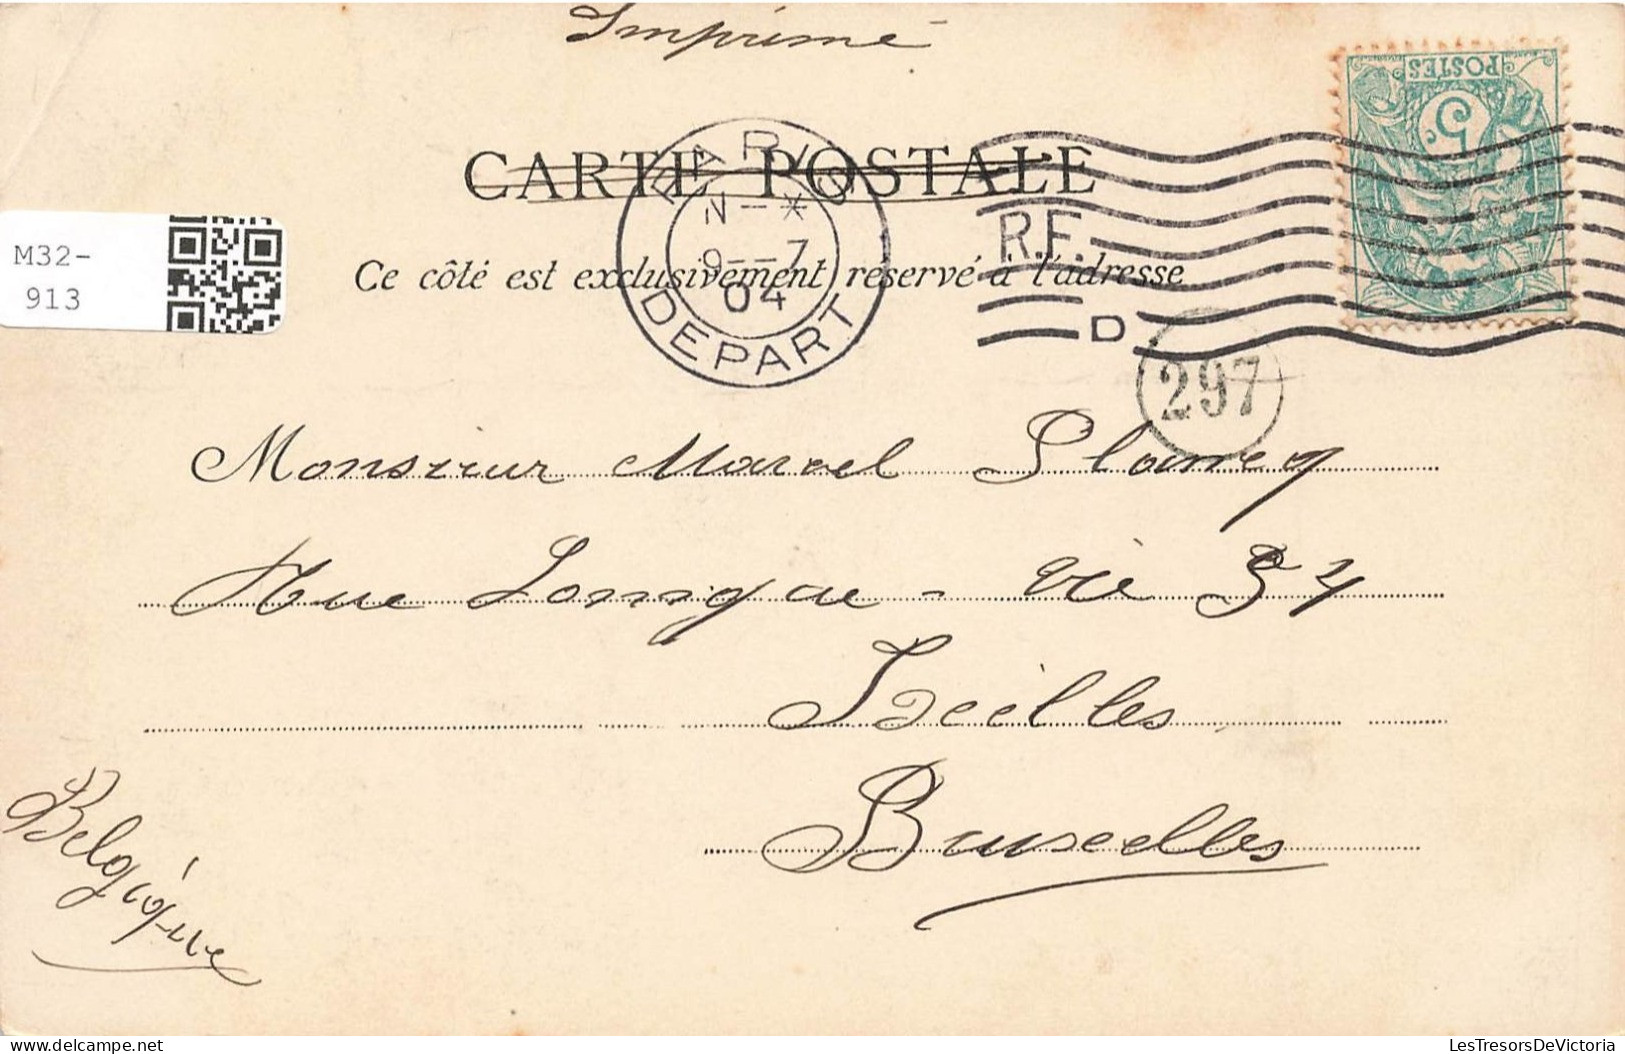 Imprimé
POSTES
5
CARTE POSTALE
PARIS
N
9--7
04
DEPART
R.F.
D
M32-
913
Ce côté est exclusivement réservé à l'adresse
297
Monsieur Marcel
Rue
Ixèlles
Bruxelles
Belgique
delcampe.net
LesTresorsDeVictoria